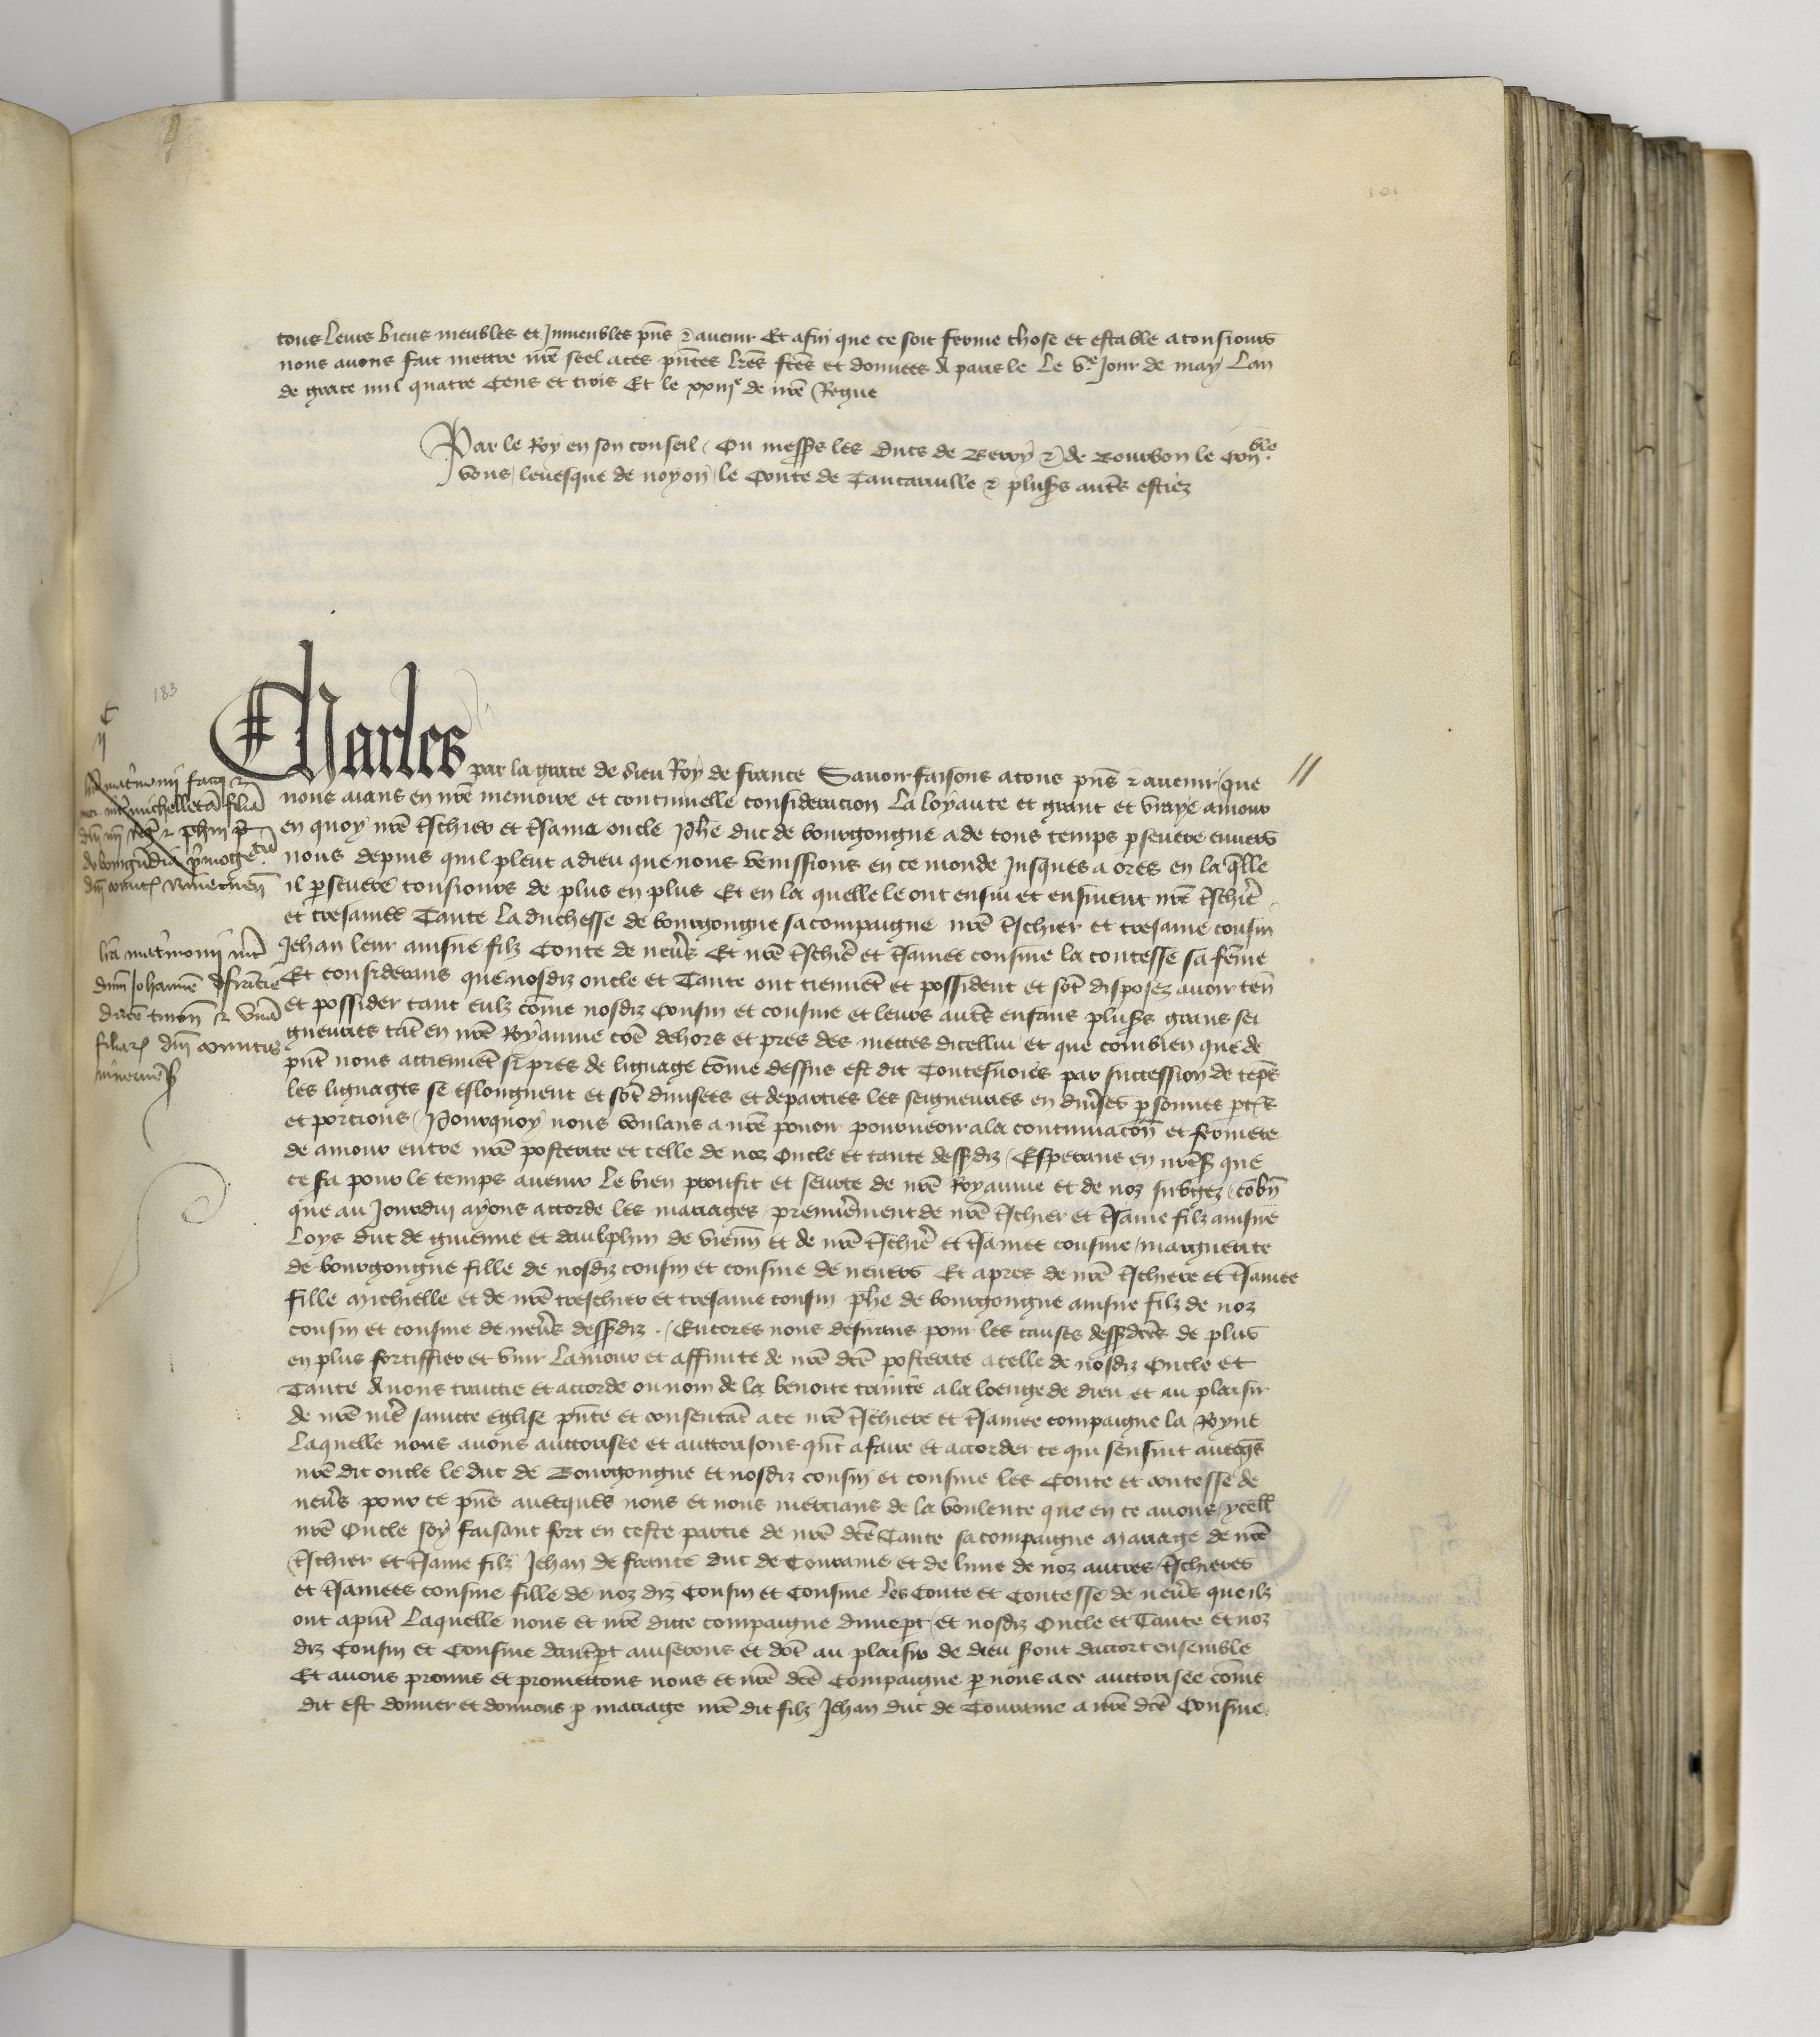 101
tous leurs biens meubles et Inmeubles pns̄ & avenir Et afin que ce soit ferme chose et estable a tousiours
nous avons fait mettre nrē seel a ces pn̄tes lrēs fctēs et donnees A paris le Le Ve Jour de may Lan
de grace mil quatre Cens et trois Et le xxiije de nrē Regne
Par le Roy en son conseil / Ou messrs les ducs de Berry & de Bourbon le Conble
vous / levesque de noyon / le Conte de Tancarville & plusrs autrs estiez
183
Charles par la grace de dieu Roy de france Savoir faisons a tous pns̄ & avenir / que
nous aians en nrē memoire et continuelle consideracion La loyaute et grant et vraye amour
en quoy nrē tschier et tsame oncle Phē duc de bourgongne a de tous temps ꝑsevere envers
nous depuis quil pleut a dieu que nous venissions en ce monde Jusques a ores en la qlle
il ꝑsevere tousiours de plus en plus Et en la quelle le ont ensui et ensuivent nrē tschiēr
et tresamee Tante La duchesse de bourgongne sa compaigne nrē tschier et tresame cousin
Jehan leur ainsne filz Conte de nevrs Et nrē tschiēr et tsamee cousine la contesse sa femē
Et considerans que nosdiz oncle et Tante ont tiennēt et possident et sōt disposez avoir tenir
et possider tant eulx cōme nosdiz Cousin et cousine et leurs autrs enfans plusrs grans sei
gneuries tāt en nrē Royaume cōe dehors et pres des mettes dicellui et que combien que de
pnt̄ nous attiennēt si pres de lignage cōme dessus est dit Toutesvoies par succession de tēps
les lignages se eslongnent et sōt divisees et departies les seigneuries en divses ꝑsonnes ptiēs
et porcions / Pourquoy nous voulans a nrē povoir pourveoir a la continuacōn et fermete
de amour entre nrē posterite et celle de noz Oncle et tante dessdiz / Esperans en nrēsr que
ce sa pour le temps avenir le bien proufit et seurte de nrē Royaume et de noz subgez cōbn̄
que au Jourdui ayons accorde les mariages / premieremēnt de nrē tschier et tsame filz ainsne
Loys duc de guienne et daulphin de viennō et de nrē tschiēr et tsamee cousine / marguerite
de bourgongne fille de nosdiz cousin et cousine de nevers Et apres de nrē tschiere et tsamee
fille michielle et de nrē treschier et tresame cousin phē de bourgongne ainsne filz de noz
cousin et cousine de nevrs dessdiz . / Encores nous desirans pour les causes dessdctēs de plus
en plus fortiffier et unir Lamour et affinite de nrē dctē posterite a celle de nosdiz Oncle et
Tante Avons traictie et accorde ou nom de la benoite trinite a la loenge de dieu et au plaisir
de nrē mē saincte eglise pnt̄e et consentāt a ce nrē tschiere et tsamee compaigne la Royne
Laquelle nous avons auctorisee et auctorisons qnt̄ a faire et accorder ce qui sensuit avecqs
nrē dit oncle le duc de Bourgongne et nosdiz cousin et cousine les Conte et contesse de
nevrs pour ce pns̄ avecques nous et nous merciant de la voulente que en ce avons / ycellī
nrē Oncle soy faisant fort en ceste partie de nrē dctē Tante sa compaigne Mariage de nrē
tschier et tsame filz Jehan de france duc de Touraine et de lune de noz autres tschieres
et tsamees cousine fille de noz diz Cousin et Cousine les Conte et Contesse de nevrs que ilz
ont a pnt̄ Laquelle nous et nrē dicte compaigne dune pt / et nosdiz Oncle et Tante et noz
diz Cousin et Cousine dautre pt aviserons et dōt au plaisir de dieu sront dacort ensemble
Et avons promis et promettons nous et nrē dctē Compaigne ꝑ nous a ce auctorisee cōme
dit est donner et donrons ꝑ mariage nrē dit filz Jehan duc de Touraine a nrē dctē Cousine
lrā matrimonii
michelletā filiā
dn̄i nr̄i Reg & phm̄
de burgūdia pmogētū
dn̄i comitꝭ nivernen̄
lrā matrimonii intr
dnm̄ Johannē de frācie
ducē turon̄ & unā
filiarꝫ dn̄i comitis
nivernēs̄